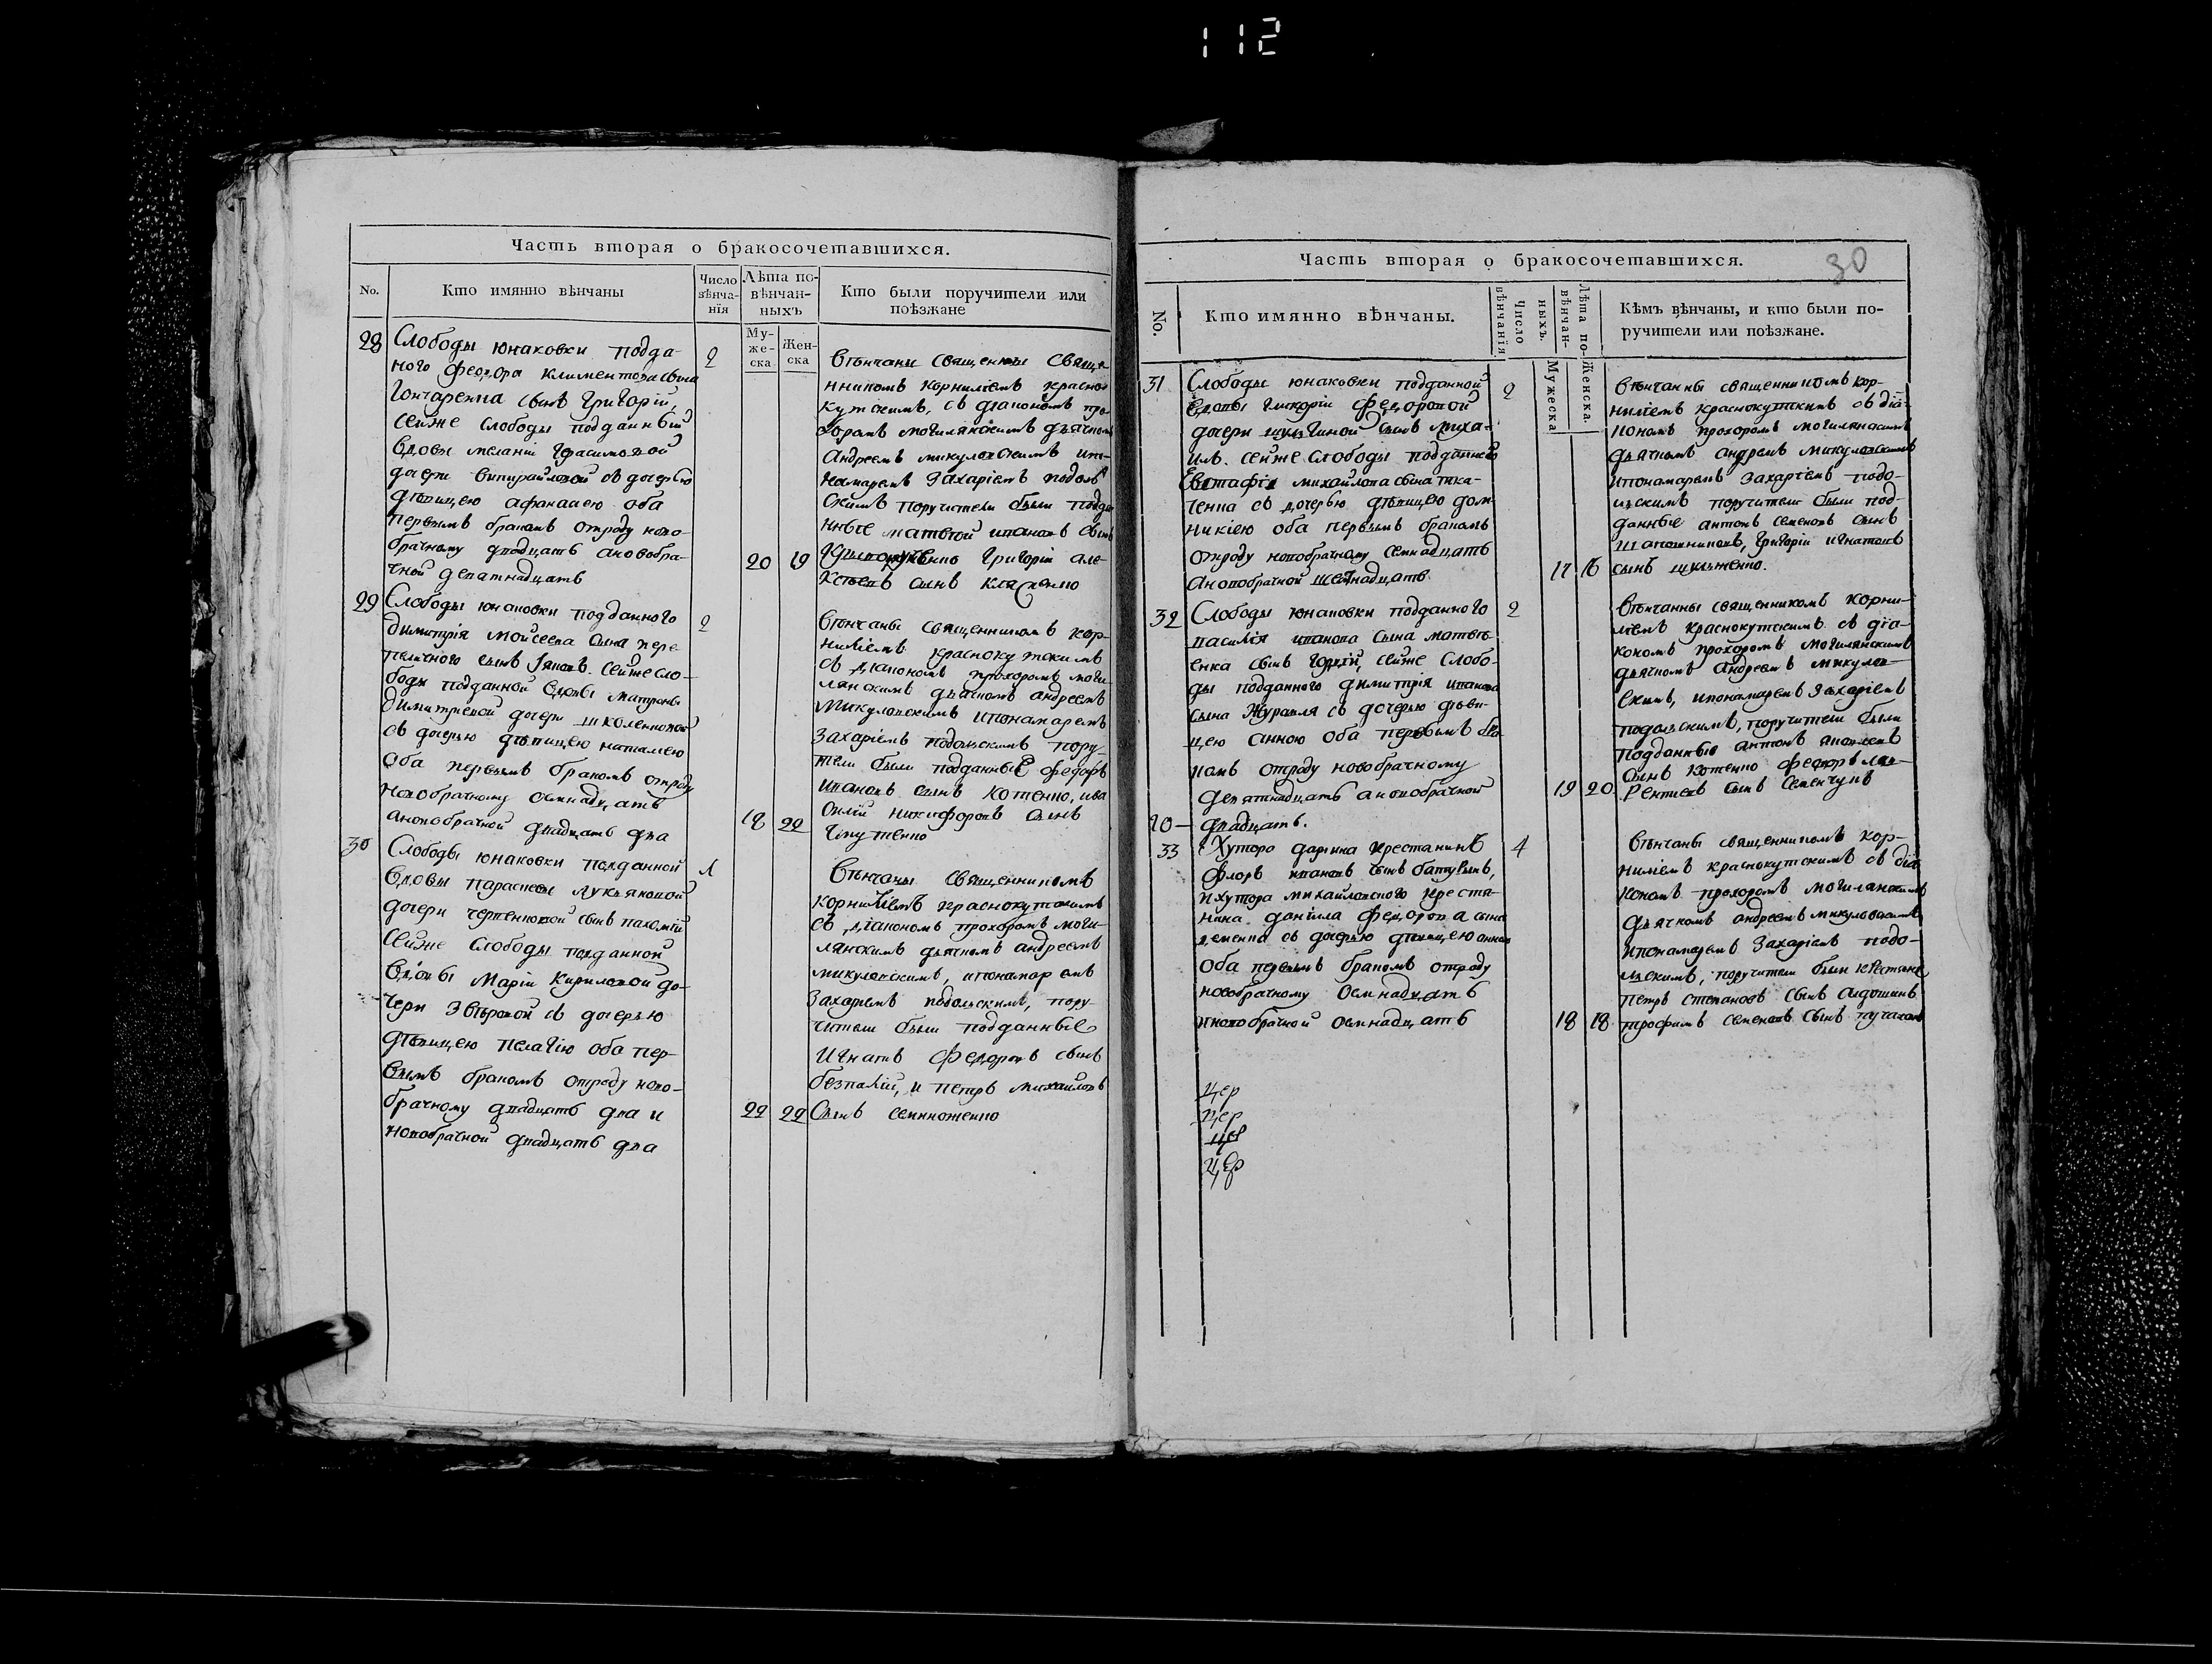 112
Часть вторая о бракосочетавшихся.
No.
Кто имянно вѣнчаны
Число вѣнча-нїя
Лѣта по-вѣнчан-ныхъ
Му-же-ска
Жен-ска
Кто были поручители или поѣзжане
28
Слободы юнаковки подда-
ного федора климентова сына
Гончаренка сынъ Григорій,
сейже слободы подданной
вдовы меланіи Герасимовой
дочери съ дочерью
девицею афанасиею оба
первымъ бракомъ отроду ново-
брачному двадцать ановобра-
чной девятнадцать
2
20
19
Вѣнчаны свяще-
нникомъ корниліемъ красно
кутскимъ, съ діакономъ про-
хоромъ могилянскимъ дьячкомъ
андреемъ микуловскимъ ипо-
номаремъ Захаріемъ подоль
скимъ поручители были подда
нные матвей ивановъ сынъ
Григорій але-
ксѣевъ сынъ
29
Слободы юнаковки подданного
димитрія мойсеева сына пере-
сынъ Яковъ. сейже сло-
боды подданной вдовы матроны
димитриевой дочери школенковой
съ дочерью девицею наталиею
оба первымъ бракомъ отроду
новобрачному осмнадцать
ановобрачной двадцать два
2
18
22
Вѣнчаны священникомъ кор-
ниліемъ краснокутскимъ
съ діакономъ прохоромъ моги
лянскимъ дьячкомъ андреемъ
микуловскимъ ипонамаремъ
Захаріемъ подольскимъ пору-
тели были подданные федоръ
ивановъ сынъ котенко, ива
силій никифоровъ сынъ
30
Слободы юнаковки подданной
вдовы параскевы лукьяновой
дочери сынъ пахомій
сейже слободы подданной
вдовы Маріи Кириловой до-
чери съ дочерью
девицею пелагію оба пер-
вымъ бракомъ отроду ново-
брачному двадцать два и
новобрачной двадцать два
22
22
Вѣнчаны священникомъ
корниліемъ краснокутскимъ
съ діакономъ прохоромъ моги-
лянскимъ дьячкомъ андреемъ
микуловскимъ, ипонамаремъ
Захаріемъ подольскимъ, пору-
чители были подданные
Игнатъ федоровъ сынъ
безпалій, и петръ михайловъ
сынъ семиноженко
Часть вторая о бракосочетавшихся.
30
No.
Кто имянно вѣнчаны.
Число вѣнчанїя
Лѣта по-вѣнчан-ныхъ.
Мужеска
Женска.
Кѣмъ вѣнчаны, и кто были по-
ручители или поѣзжане.
31
Слободы юнаковки подданной
вдовы гликеріи федоровой
дочери сынъ миха-
илъ. сейже слободы подданного
Евстафія михайлова сына тка-
ченка съ дочерью девицею дом-
никією оба первымъ бракомъ
отроду новобрачному семнадцать
ановобрачной шестнадцать
2
17
16
Вѣнчанны священникомъ кор-
ниліемъ краснокутскимъ съ діа-
кономъ прохоромъ могилянскимъ
дьячкомъ андреемъ микуловскимъ
ипонамаремъ Захаріемъ подо-
льскимъ поручители были под-
данные антонъ семеновъ сынъ
Григоріи игнатовъ
сынъ
32
Слободы юнаковки подданного
василія иванова сына матвѣ-
енка сынъ сейже слобо-
ды подданного димитрія иванова
сына Журавля съ дочерью деви-
цею анною оба первымъ бра-
комъ отроду новобрачному
девятнадцать ановобрачной
20— двадцать.
2
19
20
Вѣнчанны священникомъ корни-
ліемъ краснокутскимъ съ діа-
кономъ прохоромъ могилянскимъ
дьячкомъ андреемъ микулов-
скимъ, ипонамаремъ Захаріемъ
подольскимъ, поручители были
подданные антонъ яковлевъ
сынъ котенко федоръ лав-
рентиевъ сынъ семенчукъ
33
Хутора дарьина крестанинъ
флоръ ивановъ сынъ
ихутора михайловского креста-
нина даніила федорова сына
съ дочерью девицею анною
оба первымъ бракомъ отроду
новобрачному осмнадцать
иновобрачной осмнадцать
4
18
18
Вѣнчаны священникомъ кор-
ниліемъ краснокутскимъ съ діа
кономъ прохоромъ могилянскимъ
дьячкомъ андреемъ микуловскимъ
ипонамаремъ Захаріемъ подо-
льскимъ, поручители были крестяне
петръ степановъ сынъ
трофимъ семеновъ сынъ
Цер
Цер
Цер
Цер